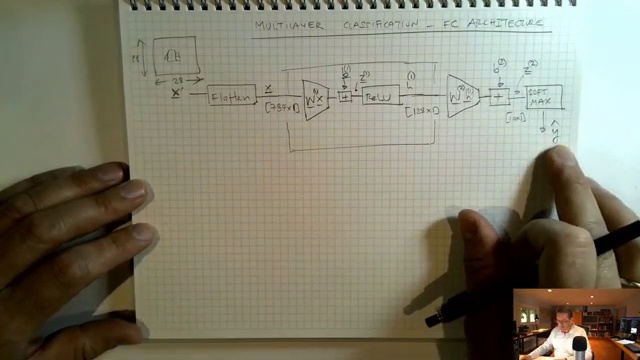 MULTILAYER CLASSIFICATION - FC ARCHITECTURE
28
28
x' Flatten x [784x1] W⁽¹⁾x + b⁽¹⁾ z⁽¹⁾ ReLU h⁽¹⁾ [128x1] W⁽²⁾h⁽¹⁾ + b⁽²⁾ z⁽²⁾ [10x1] SOFT
MAX
ŷ